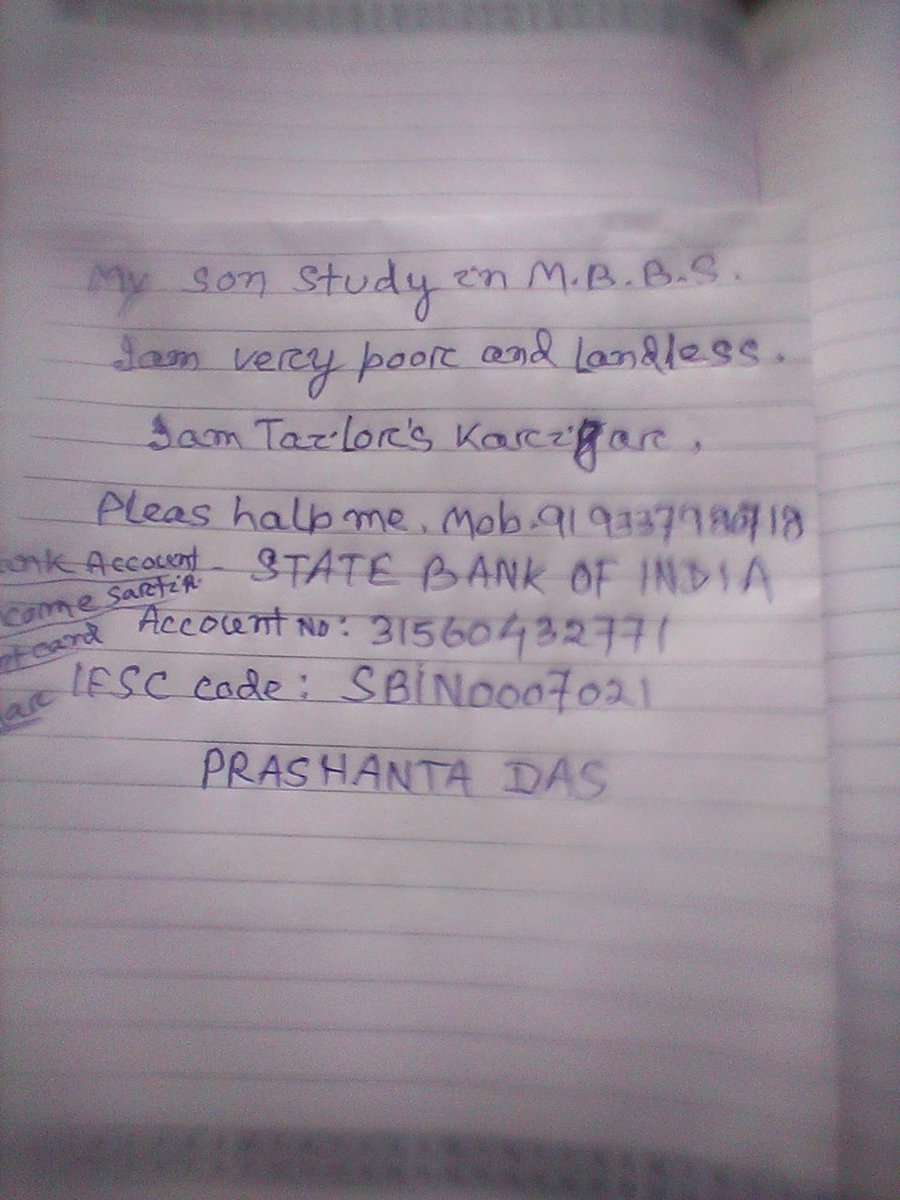 My son study in M.B.B.S.
I am very poor and Landless.
I am Tailor's Karigar,
Pleas halp me. Mob-91 9337980718
ank Account - STATE BANK OF INDIA
come Sartifi
Account No: 31560432771
card
IFSC code: SBIN0007021
PRASHANTA DAS